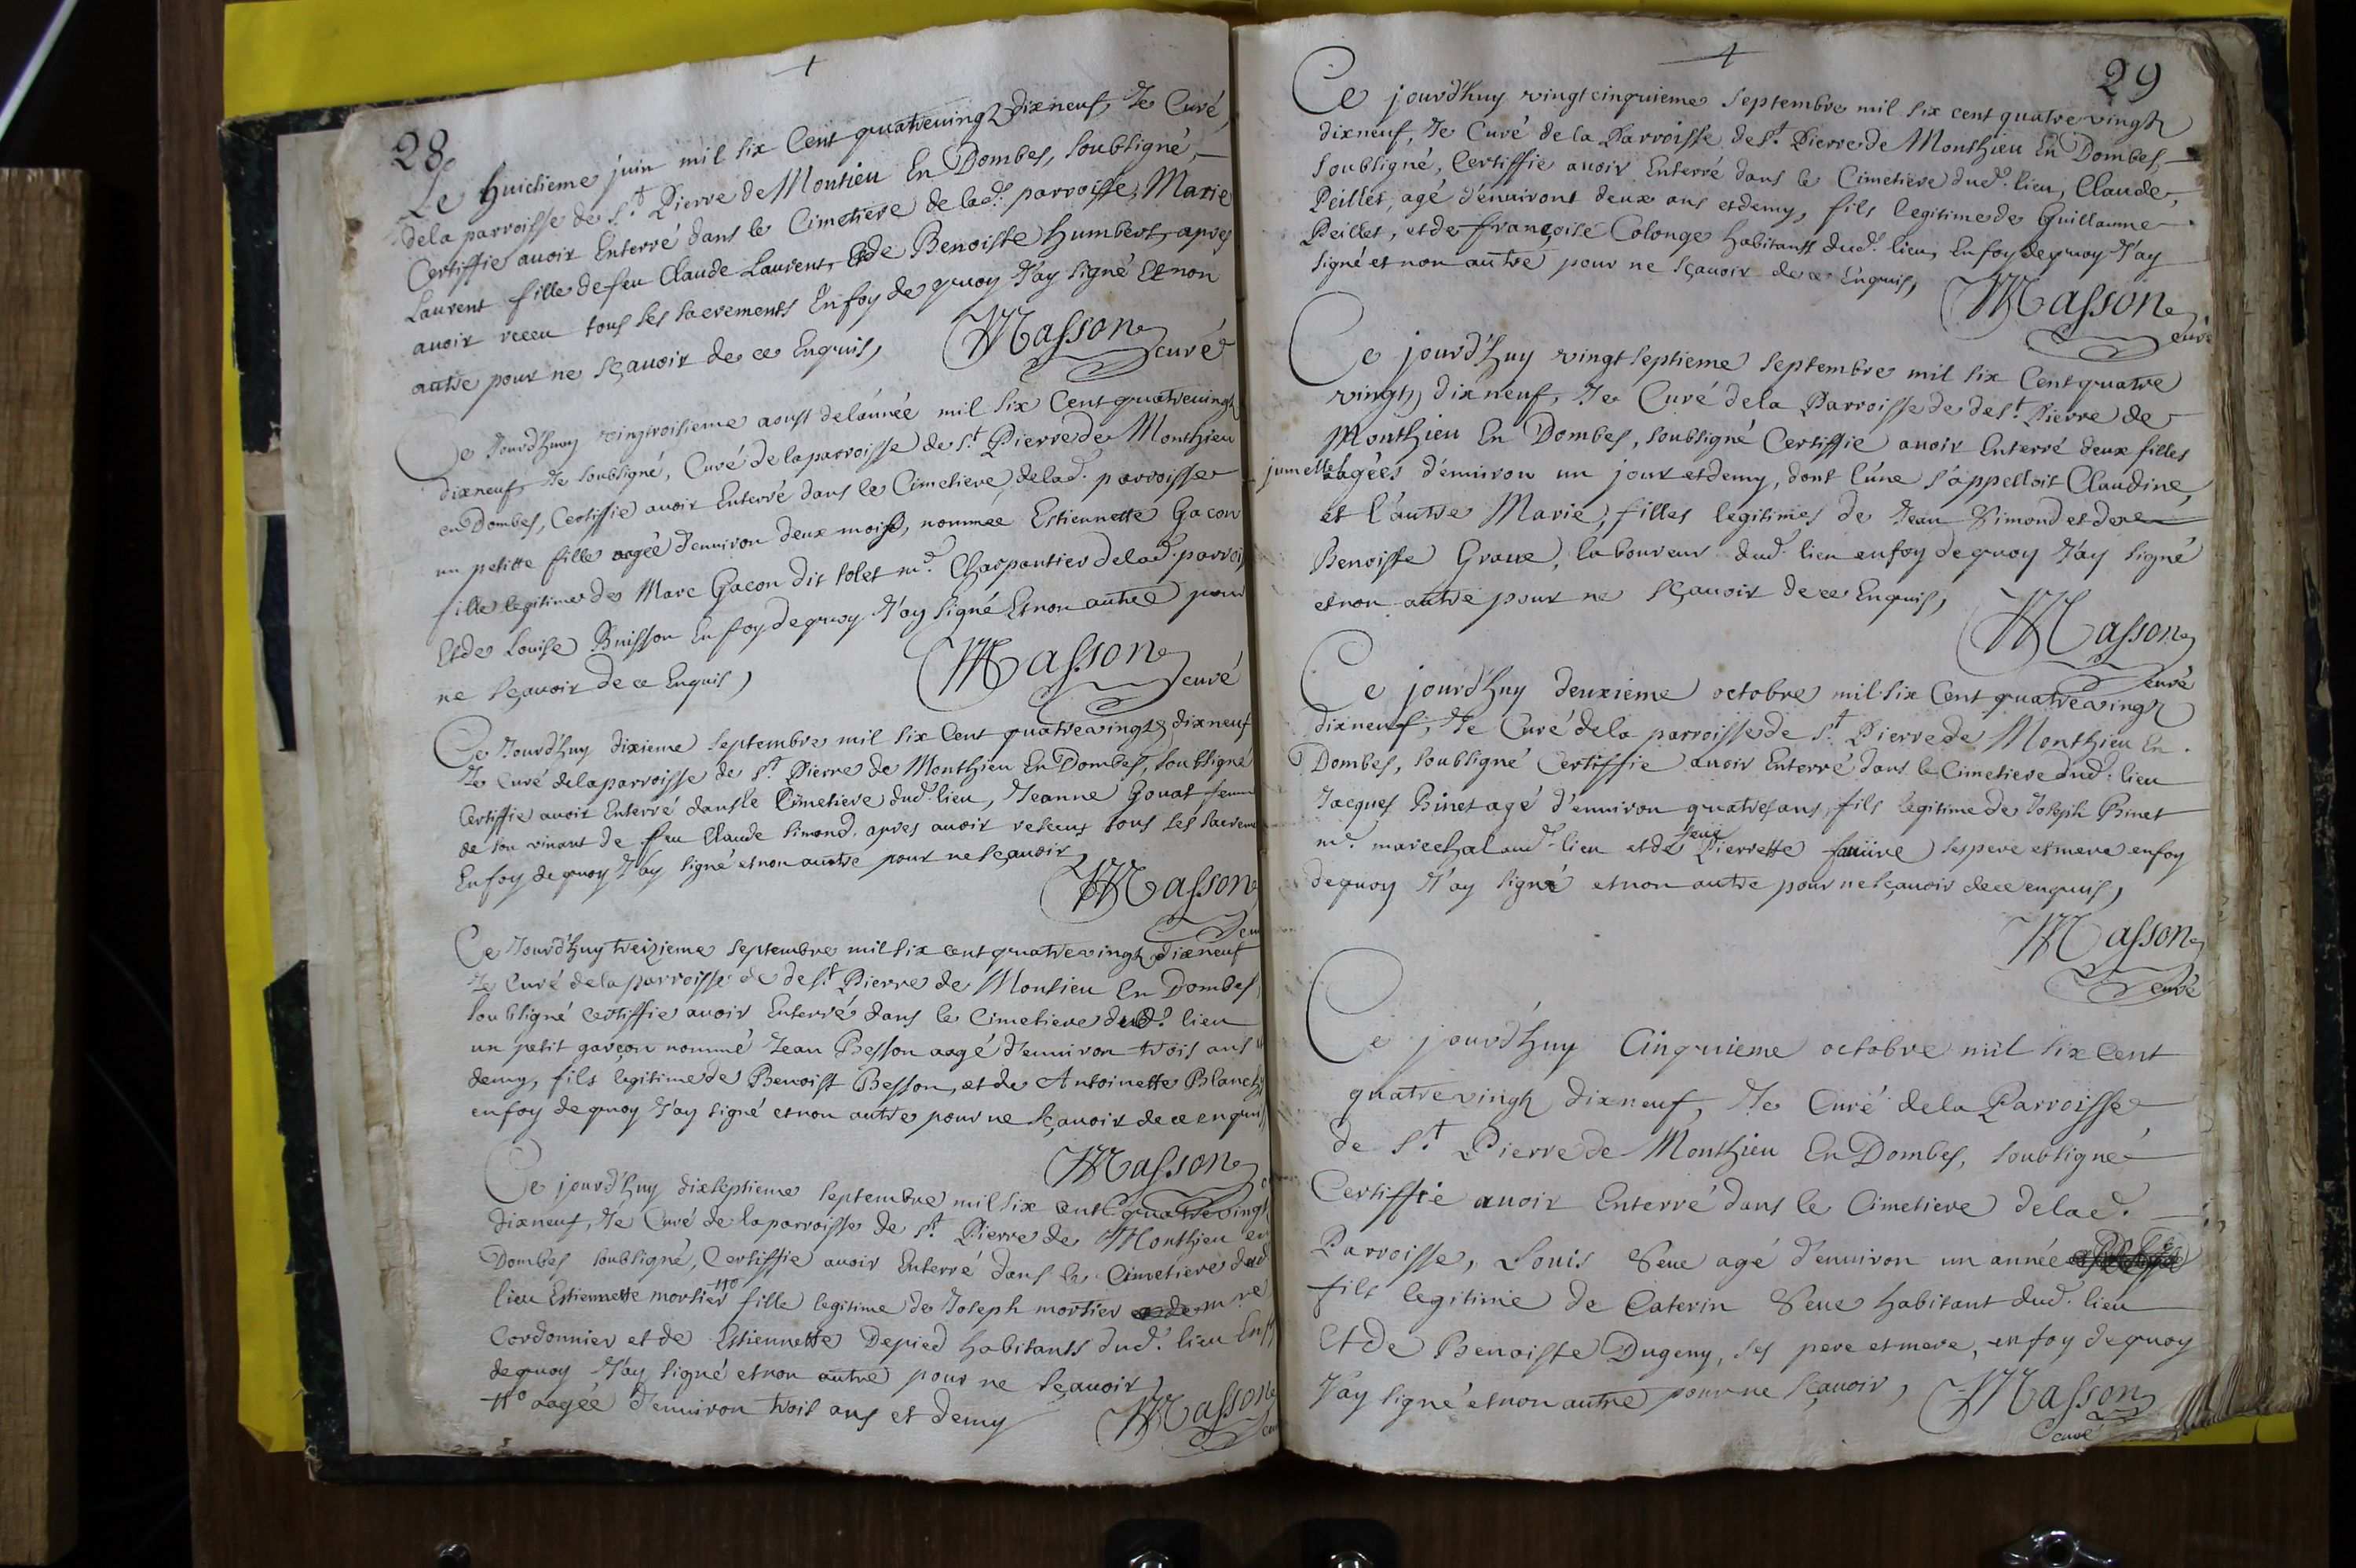 28
Le huictieme juin mil six Cent quatrevingt dixneuf, Je Curé,
dela parroisse de St Pierre de Montieu En Dombes, soubsigné,
Certiffie auoir Enterré dans le Cimetiere de lad. parroisse, Marie
Laurent fille de feu Claude Laurent, Et de Benoiste Humbert, apres
auoir receu tous ses sacrements En foy de quoy J'ay signé Et non
autre pour ne sçauoir de ce Enquis,
Masson
curé
Ce Jourd'huy vingtroisieme aoust de l'année mil six Cent quatrevingt
dixneuf, Je soubsigné, Curé de la parroisse de St Pierre de Monthieu
en Dombes, Certiffie auoir Enterré dans le Cimetiere de lad. parroisse
un petitte fille aagée d'enuiron deux mois, nommée Estiennette Gacon
fille legitime de Marc Gacon dit tolet md. Charpantier de lad. parrois
Et de Louise Buisson En foy de quoy J'ay signé Et non autre pour
ne sçauoir de ce Enquis,
Masson
curé
Ce Jourd'huy dixieme septembre mil six Cent quatrevingts dixneuf
Je Curé de la parroisse de St Pierre de Monthieu En Dombes, soubsigné
Certiffie auoir Enterré dans le Cimetiere dud. lieu, Jeanne Gouat femme
de son viuant de feu Claude Simond, apres auoir receus tous ses sacreme
En foy de quoy J'ay signé et non autre pour ne sçauoir,
Masson
Ce Jourd'huy treizieme septembre mil six cent quatrevingt dixneuf
Je Curé de la parroisse de de St Pierre de Montieu En Dombes,
soubsigné certiffie auoir Enterré dans le Cimetiere dud. lieu
un petit garçon nommé Jean Besson aagé d'enuiron trois ans et
demy, fils legitime de Benoist Besson, et de Antoinette Blanch
en foy de quoy J'ay signé et non autre pour ne sçauoir de ce enquis
Masson
Ce jourd'huy dixseptieme septembre mil six cent quatrevingt
dixneuf, Je Curé de la parroisse de St Pierre de Monthieu en
Dombes soubsigné, Certiffie auoir Enterré dans le Cimetiere dud
lieu Estiennette mortier fille legitime de Joseph mortier
Cordonnier et de Estiennette Depied habitants dud. lieu En f
de quoy J'ay signé et non autre pour ne sçauoir,
aagée d'enuiron trois ans et demy
Masson
29
Ce jourd'huy vingtcinquieme septembre mil six cent quatre vingt
dixneuf, Je Curé de la Parroisse de St Pierre de Monthieu En Dombes,
soubsigné, Certiffie auoir Enterré dans le Cimetiere dud. lieu, Claude,
Peillet, agé d'enuiront deux ans et demy, fils legitime de Guillaume
Peillet, et de françoise Colonge habitants dud. lieu, En foy de quoy J'ay
signé et non autre pour ne sçauoir de ce Enquis,
Masson
curé
Ce jourd'huy vingtseptieme septembre mil six Cent quatre
vingts dixneuf, Je Curé de la Parroisse de de St Pierre de
Monthieu En Dombes, soubsigné Certiffie auoir Enterré deux filles
jumelle agées d'enuiron un jour et demy, dont l'une s'appelloit Claudine,
et l'autre Marie, filles legitimes de Jean Simond et de
Benoiste Graue, laboureur dud. lieu en foy de quoy J'ay signé
et non autre pour ne sçauoir de ce Enquis,
Masson
curé
Ce jourd'huy deuxieme octobre mil six Cent quatrevingt
dixneuf, Je Curé de la parroisse de St Pierre de Monthieu En
Dombes, soubsigné Certiffie auoir Enterré dans le Cimetiere dud. lieu
Jacques Binet agé d'enuiron quatres ans, fils legitime de Joseph Binet
md. marechal aud. lieu et de feue Pierrette ses pere et mere en foy
de quoy J'ay signé et non autre pour ne sçauoir de ce enquis,
Masson
curé
Ce jourd'huy Cinquieme octobre mil six Cent
quatrevingt dixneuf, Je Curé de la Parroisse
de St Pierre de Monthieu En Dombes, soubsigné
Certiffie auoir Enterré dans le Cimetiere de lad.
Parroisse, Louis Seue agé d'enuiron un année
fils legitime de Caterin Seue habitant dud. lieu
Et de Benoiste Dugeny, ses pere et mere, en foy de quoy
J'ay signé et non autre pour ne sçauoir,
Masson
curé